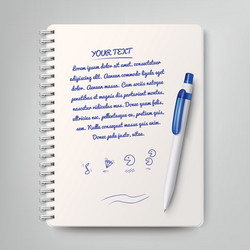 YOUR TEXT
Lorem ipsum dolor sit amet, consectetuer
adipiscing elit. Aenean commodo ligula
eget dolor. Aenean massa. Cum sociis natoque
penatibus et magnis dis parturient montes,
nascetur ridiculus mus. Donec quam felis,
ultricies nec, pellentesque eu, pretium quis,
sem. Nulla consequat massa quis enim.
Donec pede justo, vitae.